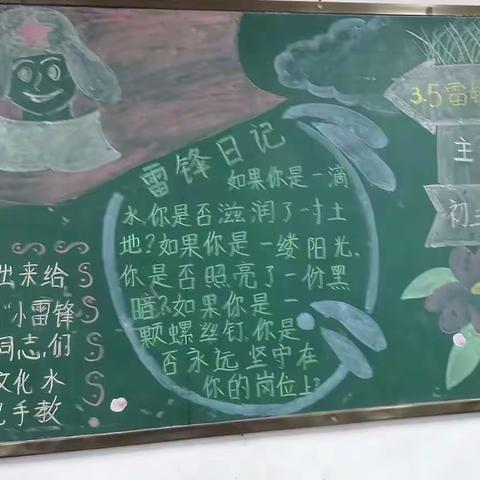 雷锋日记
如果你是一滴
水,你是否滋润了一寸土
地?如果你是一缕阳光,
你是否照亮了一份黑
暗?如果你是一
颗螺丝钉,你是
否永远坚中在
你的岗位上?
出来给
"小雷锋
同志们
文化水
手教
3.5雷锋
主
初三